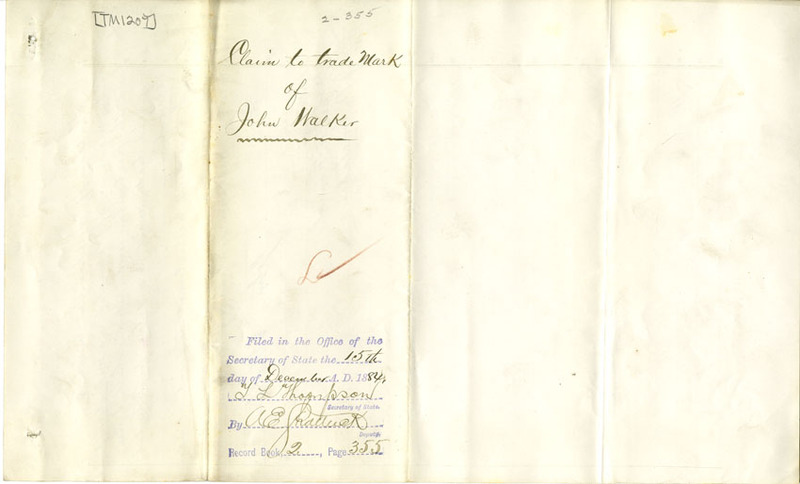 [TM1209]
2-355
Claim to trade Mark
of
John Walker
Filed in the Office of the
Secretary of State the 15th
day of December A. D. 1884,
T L Thompson
Secretary of State.
By A E Shattuck
Deputy.
Record Book 2, Page 355